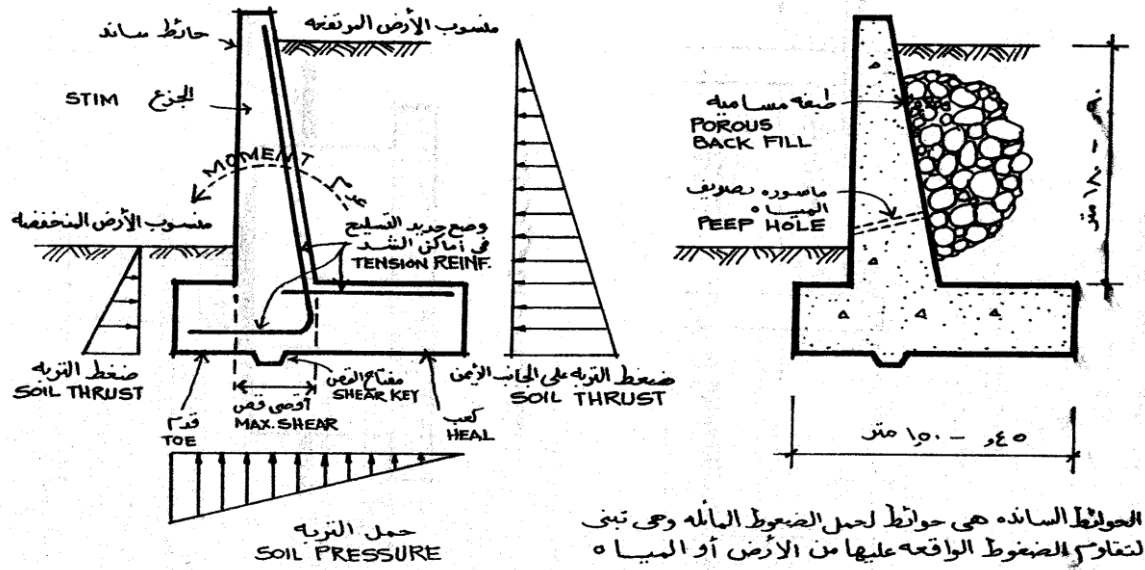 منسوب الأرض المرتفعه
حائط ساند
الجزع
STIM
MOMENT
عزم
منسوب الأرض المنخفضه
وضع حديد التسليح
في أماكن الشد
TENSION REINF.
ضغط التربه
SOIL THRUST
مفتاح القص
SHEAR KEY
أقصى قص
MAX. SHEAR
قدم
TOE
كعب
HEAL
ضغط التربه على الجانب الأيمن
SOIL THRUST
حمل التربه
SOIL PRESSURE
طبقه مساميه
POROUS
BACK FILL
ماسوره تصريف
المياه
PEEP HOLE
٩٠, - ١٨٠ متر
٤٥, - ١٥٠, متر
الحوائط السانده هى حوائط لحمل الضغوط المائله وهى تبنى
لتقاوم الضغوط الواقعه عليها من الأرض أو المياه